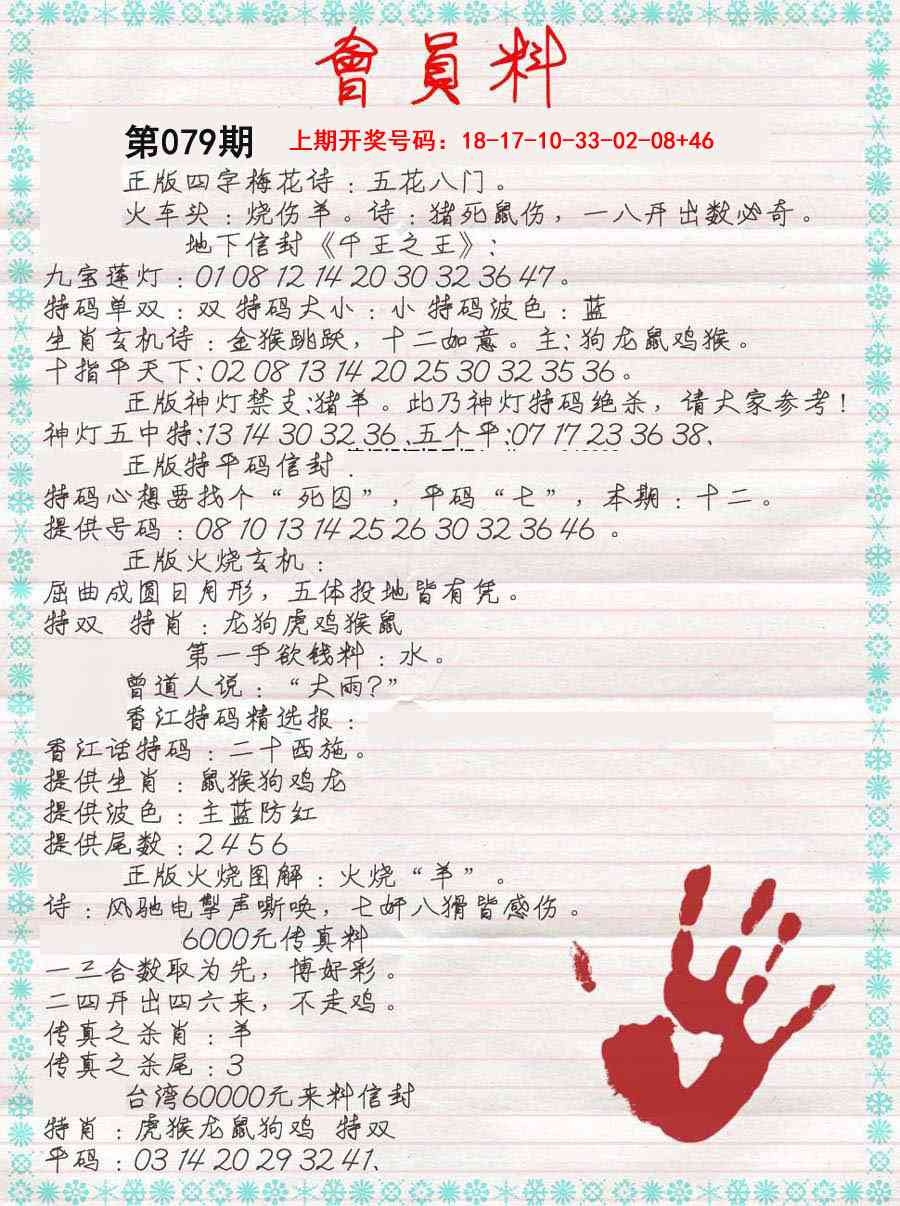 會員料
第079期 上期开奖号码：18-17-10-33-02-08+46
正版四字梅花诗：五花八门。
火车头：烧伤羊。诗：猪死鼠伤，一八开出数必奇。
地下信封《千王之王》：
九宝莲灯：01 08 12 14 20 30 32 36 47。
特码单双：双 特码大小：小 特码波色：蓝
生肖玄机诗：金猴跳跃，十二如意。主：狗龙鼠鸡猴。
十指平天下：02 08 13 14 20 25 30 32 35 36。
正版神灯禁支：猪羊。此乃神灯特码绝杀，请大家参考！
神灯五中特：13 14 30 32 36、五个平：07 17 23 36 38、
正版特平码信封：
特码心想要找个“死囚”，平码“七”，本期：十二。
提供号码：08 10 13 14 25 26 30 32 36 46 。
正版火烧玄机：
屈曲成圆日月形，五体投地皆有凭。
特双 特肖：龙狗虎鸡猴鼠
第一手欲钱料：水。
曾道人说：“大雨？”
香江特码精选报：
香江话特码：二十西施。
提供生肖：鼠猴狗鸡龙
提供波色：主蓝防红
提供尾数：2 4 5 6
正版火烧图解：火烧“羊”。
诗：风驰电掣声嘶唤，七奸八猾皆感伤。
6000元传真料
一三合数取为先，博好彩。
二四开出四六来，不走鸡。
传真之杀肖：羊
传真之杀尾：3
台湾60000元来料信封
特肖：虎猴龙鼠狗鸡 特双
平码：03 14 20 29 32 41、